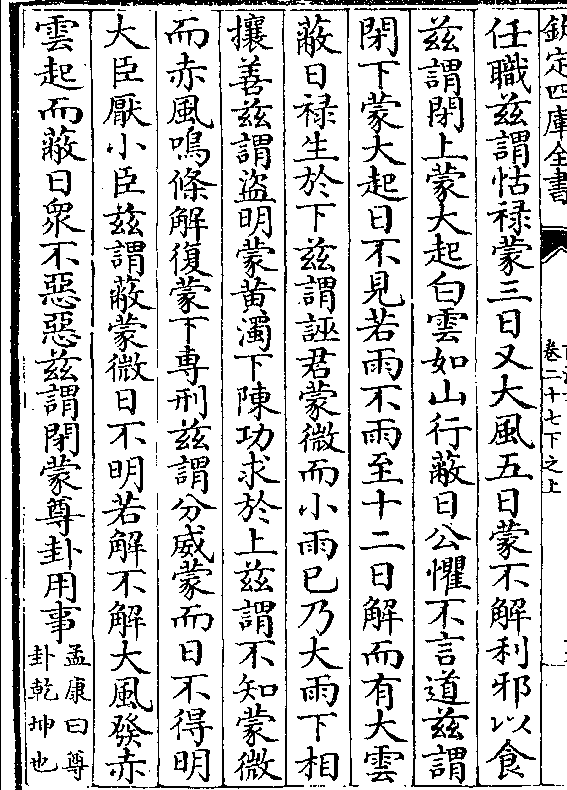 欽定四庫全書
卷二十七下之上
任職茲謂怙禄蒙三日又大風五日蒙不解利邪以食
茲謂閉上蒙大起白雲如山行蔽日公懼不言道茲謂
閉下蒙大起日不見若雨不雨至十二日解而有大雲
蔽日禄生於下茲謂誣君蒙微而小雨已乃大雨下相
攘善茲謂盜明蒙黄濁下陳功求於上茲謂不知蒙微
而赤風鳴條解復蒙下専刑茲謂分威蒙而日不得明
大臣厭小臣茲謂蔽蒙微日不明若解不解大風發赤
雲起而蔽日衆不惡惡茲謂閉蒙尊卦用事
孟康曰尊
卦乾坤也